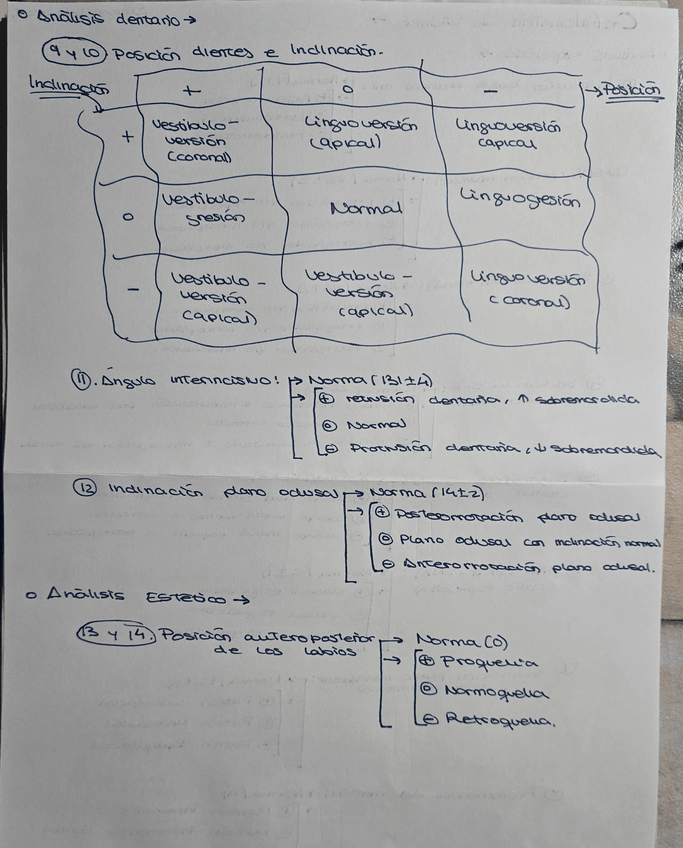 o Análisis dentario →
9 y 10 Posición dientes e Inclinación.
Inclinación + o - → Posición
+ Vestibulo-versión (coronal) Linguoversión (apical) Linguoversión apical
o Vestibulo-gresión Normal Linguogresión
- Vestibulo-versión (apical) Vestibulo-versión (apical) Linguoversión (coronal)
11. Ángulo interincisivo: → Norma (131±4)
→ + retrusión dentaria, ↑ sobremordida
o Normal
- Protrusión dentaria, ↓ sobremordida
12 Inclinación plano oclusal → Norma (14±2)
→ + Posterorrotación plano oclusal
o Plano oclusal con inclinación normal
- Anterorrotación plano oclusal.
o Análisis Estético →
13 y 14. Posición anteroposterior → Norma (0)
de los labios → + Proquelia
o Normoquelia
- Retroquelia.